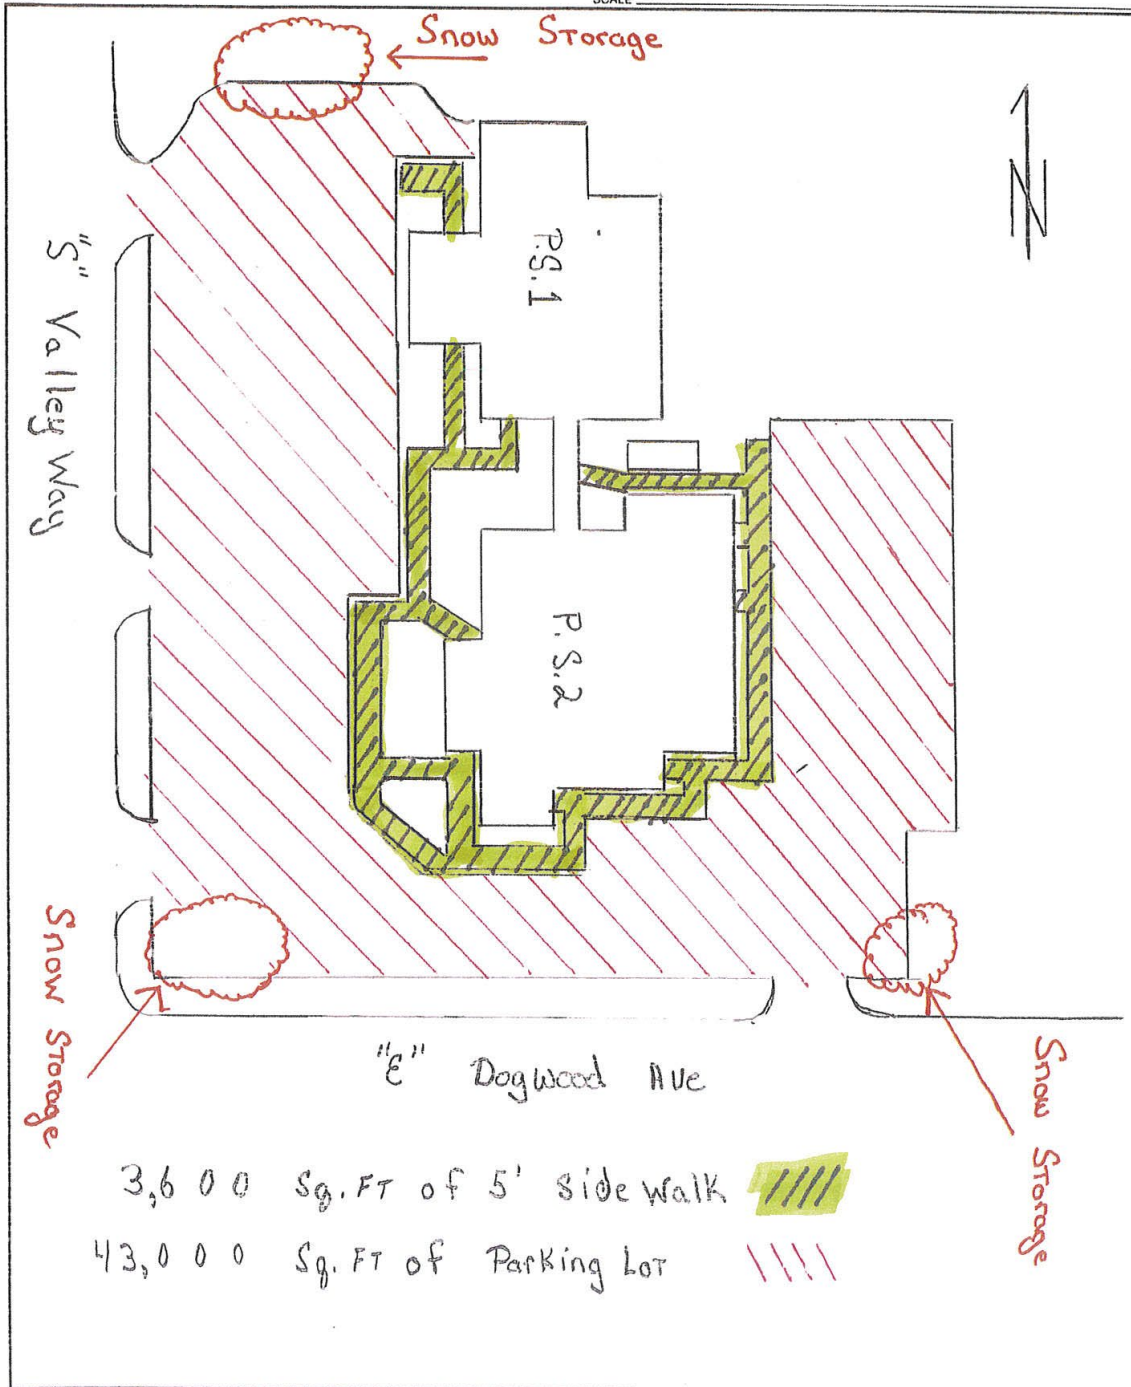 SCALE
Snow Storage
N
P.S.1
"S" Valley Way
P.S.2
Snow Storage
Snow Storage
"E" Dogwood Ave
3,600 Sq. FT of 5' Side Walk
43,000 Sq. FT of Parking Lot